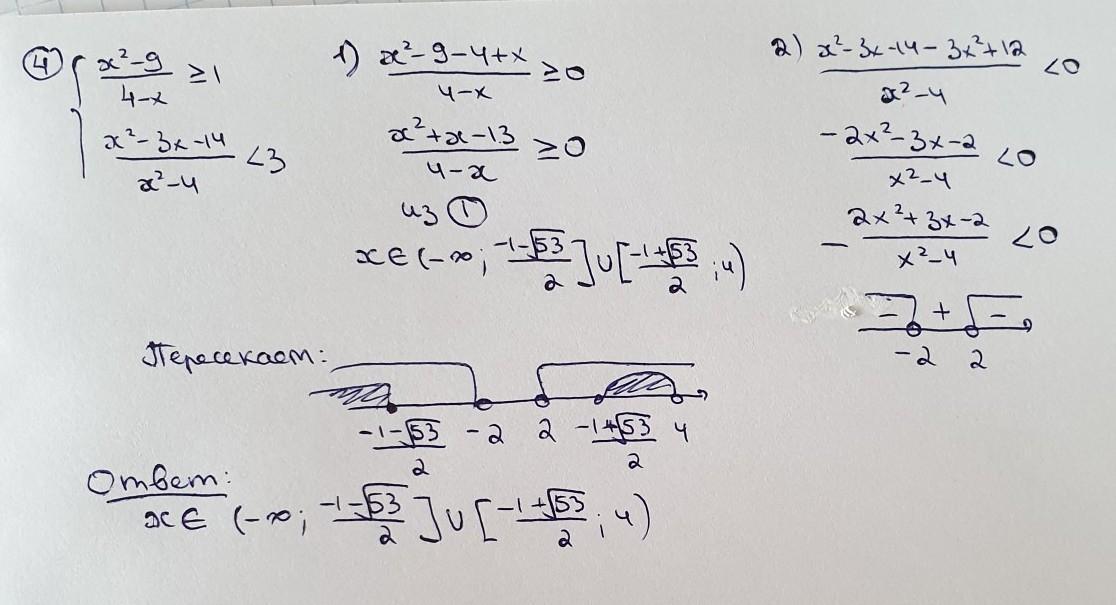 ④ { (x²-9)/(4-x) ≥ 1
(x²-3x-14)/(x²-4) < 3
1) (x²-9-4+x)/(4-x) ≥ 0
(x²+x-13)/(4-x) ≥ 0
из ①
x∈(-∞; (-1-√53)/2] ∪ [(-1+√53)/2; 4)
2) (x²-3x-14-3x²+12)/(x²-4) < 0
(-2x²-3x-2)/(x²-4) < 0
- (2x²+3x-2)/(x²-4) < 0
- + -
-2 2
Пересекаем:
(-1-√53)/2 -2 2 (-1+√53)/2 4
Ответ:
x∈ (-∞; (-1-√53)/2] ∪ [(-1+√53)/2; 4)